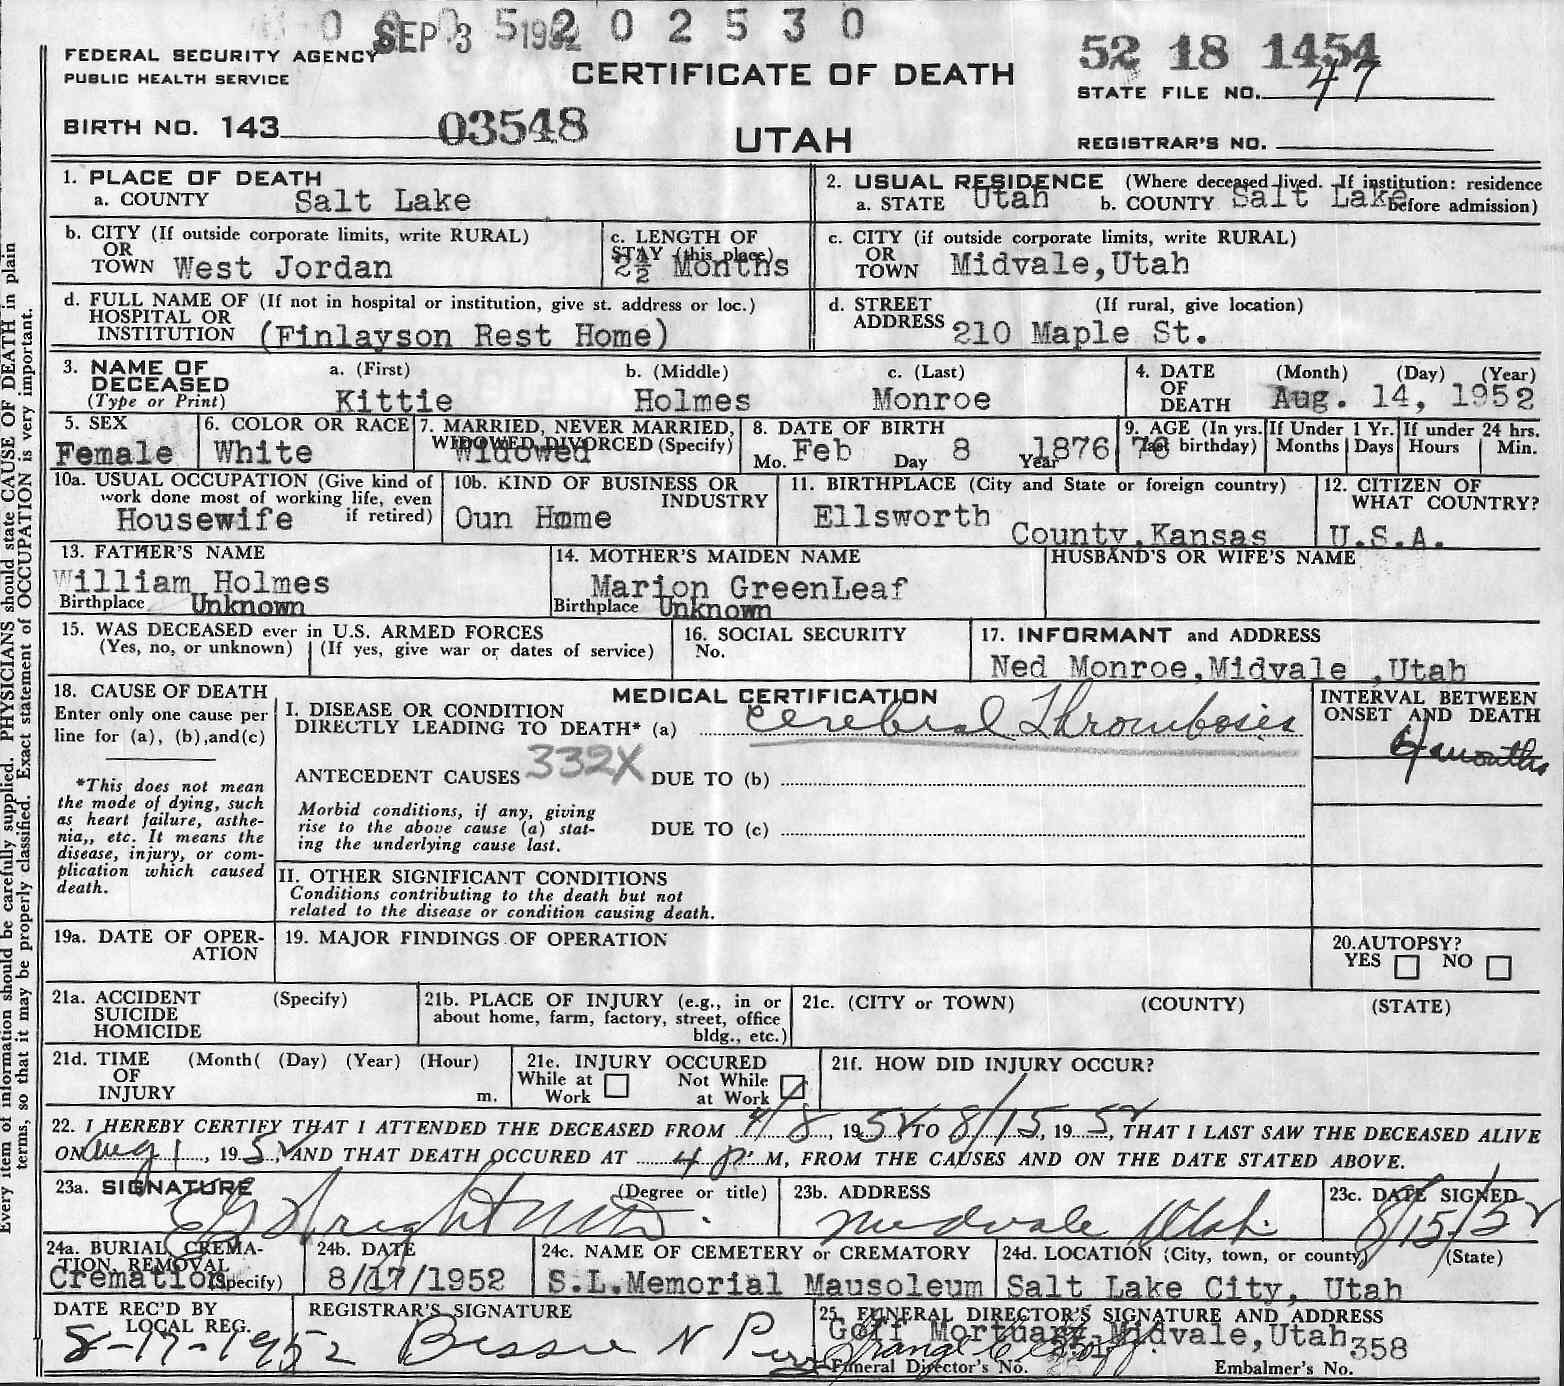 SEP 3 1952 0 2 5 3 0
FEDERAL SECURITY AGENCY
PUBLIC HEALTH SERVICE
CERTIFICATE OF DEATH
52 18 1454
STATE FILE NO. 47
BIRTH NO. 143 03548
UTAH
REGISTRAR'S NO.
1. PLACE OF DEATH
a. COUNTY Salt Lake
2. USUAL RESIDENCE (Where deceased lived. If institution: residence before admission)
a. STATE Utah b. COUNTY Salt Lake
b. CITY (If outside corporate limits, write RURAL)
OR
TOWN West Jordan
c. LENGTH OF
STAY (this place)
2½ Months
c. CITY (if outside corporate limits, write RURAL)
OR
TOWN Midvale,Utah
d. FULL NAME OF (If not in hospital or institution, give st. address or loc.)
HOSPITAL OR
INSTITUTION (Finlayson Rest Home)
d. STREET (If rural, give location)
ADDRESS 210 Maple St.
3. NAME OF
DECEASED
(Type or Print)
a. (First) b. (Middle) c. (Last)
Kittie Holmes Monroe
4. DATE (Month) (Day) (Year)
OF
DEATH Aug. 14, 1952
5. SEX
Female
6. COLOR OR RACE
White
7. MARRIED, NEVER MARRIED,
WIDOWED, DIVORCED (Specify)
Widowed
8. DATE OF BIRTH
Mo. Feb Day 8 Year 1876
9. AGE (In yrs.
last birthday)
76
If Under 1 Yr.
Months Days
If under 24 hrs.
Hours Min.
10a. USUAL OCCUPATION (Give kind of
work done most of working life, even
if retired)
Housewife
10b. KIND OF BUSINESS OR
INDUSTRY
Oun Hmme
11. BIRTHPLACE (City and State or foreign country)
Ellsworth
County,Kansas
12. CITIZEN OF
WHAT COUNTRY?
U.S.A.
13. FATHER'S NAME
William Holmes
Birthplace Unknown
14. MOTHER'S MAIDEN NAME
Marion GreenLeaf
Birthplace Unknown
HUSBAND'S OR WIFE'S NAME
15. WAS DECEASED ever in U.S. ARMED FORCES
(Yes, no, or unknown) (If yes, give war or dates of service)
16. SOCIAL SECURITY
No.
17. INFORMANT and ADDRESS
Ned Monroe,Midvale ,Utah
18. CAUSE OF DEATH
Enter only one cause per
line for (a), (b),and(c)
*This does not mean
the mode of dying, such
as heart failure, asthe-
nia,, etc. It means the
disease, injury, or com-
plication which caused
death.
MEDICAL CERTIFICATION
I. DISEASE OR CONDITION
DIRECTLY LEADING TO DEATH* (a) Cerebral Thrombosis
ANTECEDENT CAUSES 332X DUE TO (b)
Morbid conditions, if any, giving
rise to the above cause (a) stat-
ing the underlying cause last.
DUE TO (c)
INTERVAL BETWEEN
ONSET AND DEATH
months
II. OTHER SIGNIFICANT CONDITIONS
Conditions contributing to the death but not
related to the disease or condition causing death.
19a. DATE OF OPER-
ATION
19. MAJOR FINDINGS OF OPERATION
20.AUTOPSY?
YES NO
21a. ACCIDENT (Specify)
SUICIDE
HOMICIDE
21b. PLACE OF INJURY (e.g., in or
about home, farm, factory, street, office
bldg., etc.)
21c. (CITY or TOWN) (COUNTY) (STATE)
21d. TIME (Month( (Day) (Year) (Hour)
OF
INJURY m.
21e. INJURY OCCURED
While at Work Not While at Work
21f. HOW DID INJURY OCCUR?
22. I HEREBY CERTIFY THAT I ATTENDED THE DECEASED FROM 4/8, 1952 TO 8/15, 1952, THAT I LAST SAW THE DECEASED ALIVE
ON Aug 1, 1952, AND THAT DEATH OCCURED AT 4 P. M, FROM THE CAUSES AND ON THE DATE STATED ABOVE.
23a. SIGNATURE (Degree or title)
Wright
23b. ADDRESS
Midvale Utah.
23c. DATE SIGNED
8/15/52
24a. BURIAL, CREMA-
TION, REMOVAL
(Specify)
Cremation
24b. DATE
8/17/1952
24c. NAME OF CEMETERY or CREMATORY
S.L.Memorial Mausoleum
24d. LOCATION (City, town, or county) (State)
Salt Lake City, Utah
DATE REC'D BY
LOCAL REG.
8-17-1952
REGISTRAR'S SIGNATURE
Bessie N
25. FUNERAL DIRECTOR'S SIGNATURE AND ADDRESS
Goff Mortuary Midvale,Utah 358
Funeral Director's No. Embalmer's No.
Every item of information should be carefully supplied. PHYSICIANS should state CAUSE OF DEATH in plain
terms, so that it may be properly classified. Exact statement of OCCUPATION is very important.